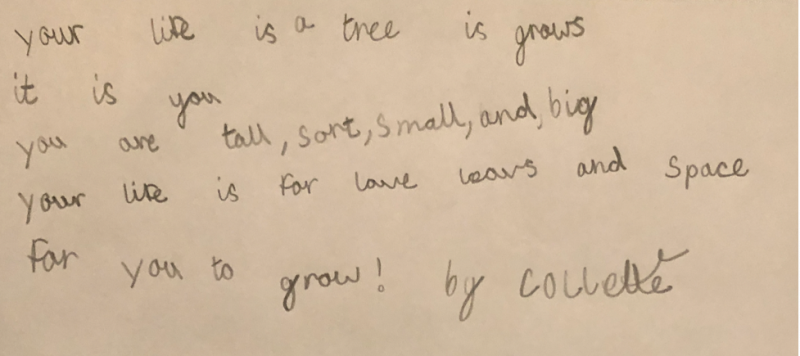 your life is a tree is grows
it is you
you are tall, sort, small, and, big
your life is for love and space
for you to grow! by collette